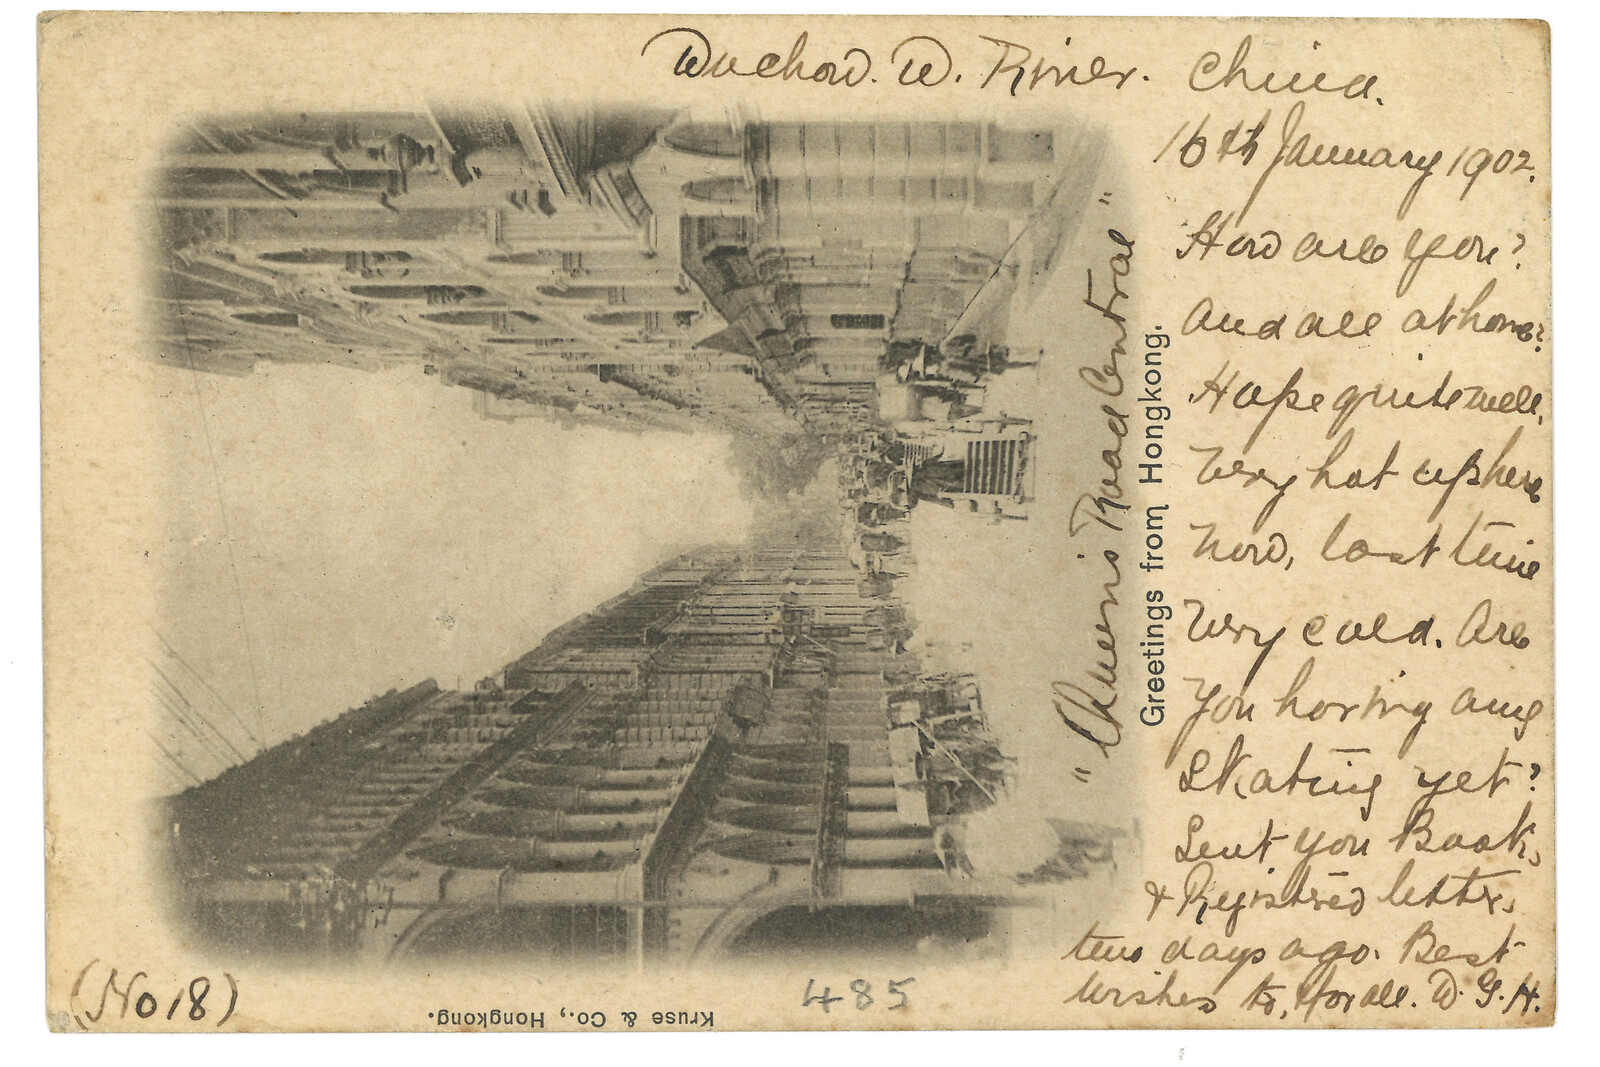 Wuchow. W. River. China.
16th January 1902.
How are you?
And all at home?
Hope quite well.
Very hot up here
now, last time
very cold. Are
you having any
Skating yet?
Sent you Book,
& Registered letter,
ten days ago. Best
wishes to, for all. W. G. H.
"Queen's Road Central"
Greetings from Hongkong.
(No 18)
485
Kruse & Co., Hongkong.